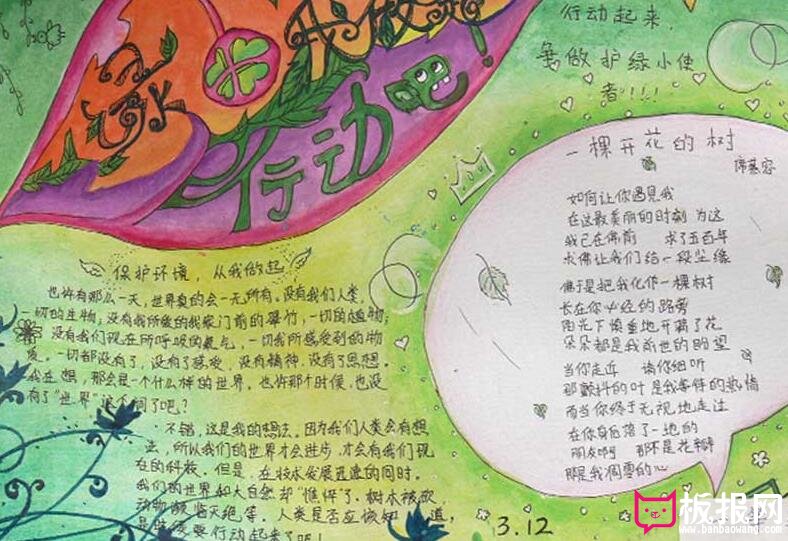 绿
我做起
行动吧!
行动起来,
争做护绿小使
者!!!!
一棵开花的树
席慕容
如何让你遇见我
在这最美丽的时刻 为这
我已在佛前 求了五百年
求佛让我们结一段尘缘
佛于是把我化作一棵树
长在你必经的路旁
阳光下慎重地开满了花
朵朵都是我前世的盼望
当你走近 请你细听
那颤抖的叶 是我等待的热情
而当你终于无视地走过
在你身后落了一地的
朋友啊 那不是花瓣
那是我凋零的心
保护环境,从我做起
也许有那么一天,世界真的会一无所有。没有我们人类,
一切的生物;没有我所爱的我家门前的翠竹,一切的植物;
没有我们现在所呼吸的氧气,一切我所感受到的物
质。一切都没有了,没有了感觉,没有精神,没有了思想。
我在想,那会是一个什么样的世界。也许那个时候,也没
有了"世界"这个词了吧?
不错,这是我的想法。因为我们人类会有想
法,所以我们的世界才会进步,才会有我们现
在的科技。但是,在技术发展迅速的同时。
我们的世界和大自然却"憔悴了,树木被砍,
动物濒临灭绝等。人类是否应做知道,
是时候要行动起来了呢!
3.12
板报网
www.banbaowang.com